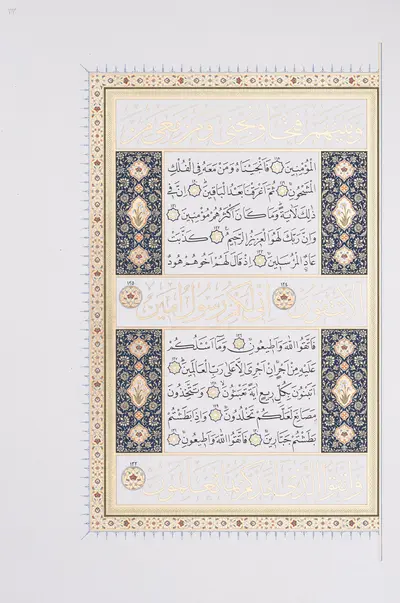 وَبَيْنَهُمْ فَتْحًا وَنَجِّنِي وَمَنْ مَعِيَ مِنَ
الْمُؤْمِنِينَ ١١٨ فَأَنْجَيْنَاهُ وَمَنْ مَعَهُ فِي الْفُلْكِ
الْمَشْحُونِ ١١٩ ثُمَّ أَغْرَقْنَا بَعْدُ الْبَاقِينَ ١٢٠ إِنَّ فِي
ذَلِكَ لَآيَةً وَمَا كَانَ أَكْثَرُهُمْ مُؤْمِنِينَ ١٢١
وَإِنَّ رَبَّكَ لَهُوَ الْعَزِيزُ الرَّحِيمُ ١٢٢ كَذَّبَتْ
عَادٌ الْمُرْسَلِينَ ١٢٣ إِذْ قَالَ لَهُمْ أَخُوهُمْ هُودٌ
أَلَا تَتَّقُونَ ١٢٤ إِنِّي لَكُمْ رَسُولٌ أَمِينٌ ١٢٥
فَاتَّقُوا اللَّهَ وَأَطِيعُونِ ١٢٦ وَمَا أَسْأَلُكُمْ
عَلَيْهِ مِنْ أَجْرٍ إِنْ أَجْرِيَ إِلَّا عَلَى رَبِّ الْعَالَمِينَ ١٢٧
أَتَبْنُونَ بِكُلِّ رِيعٍ آيَةً تَعْبَثُونَ ١٢٨ وَتَتَّخِذُونَ
مَصَانِعَ لَعَلَّكُمْ تَخْلُدُونَ ١٢٩ وَإِذَا بَطَشْتُمْ
بَطَشْتُمْ جَبَّارِينَ ١٣٠ فَاتَّقُوا اللَّهَ وَأَطِيعُونِ ١٣١
وَاتَّقُوا الَّذِي أَمَدَّكُمْ بِمَا تَعْلَمُونَ ١٣٢